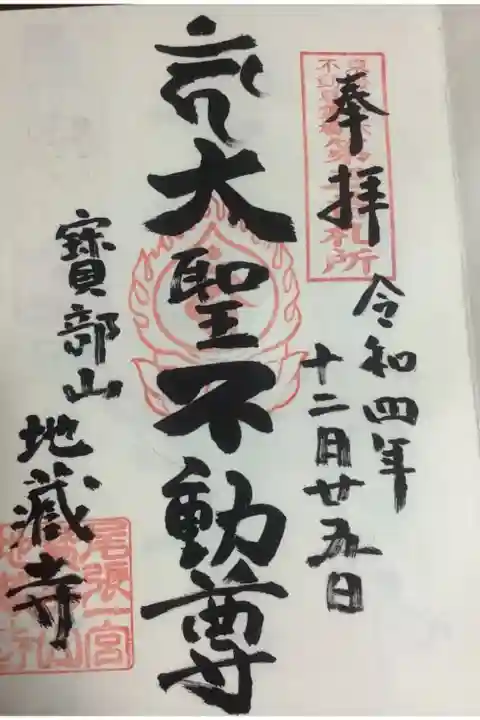 奉拝
令和四年
十二月廿五日
大聖不動尊
寶部山
地蔵寺
尾張一宮